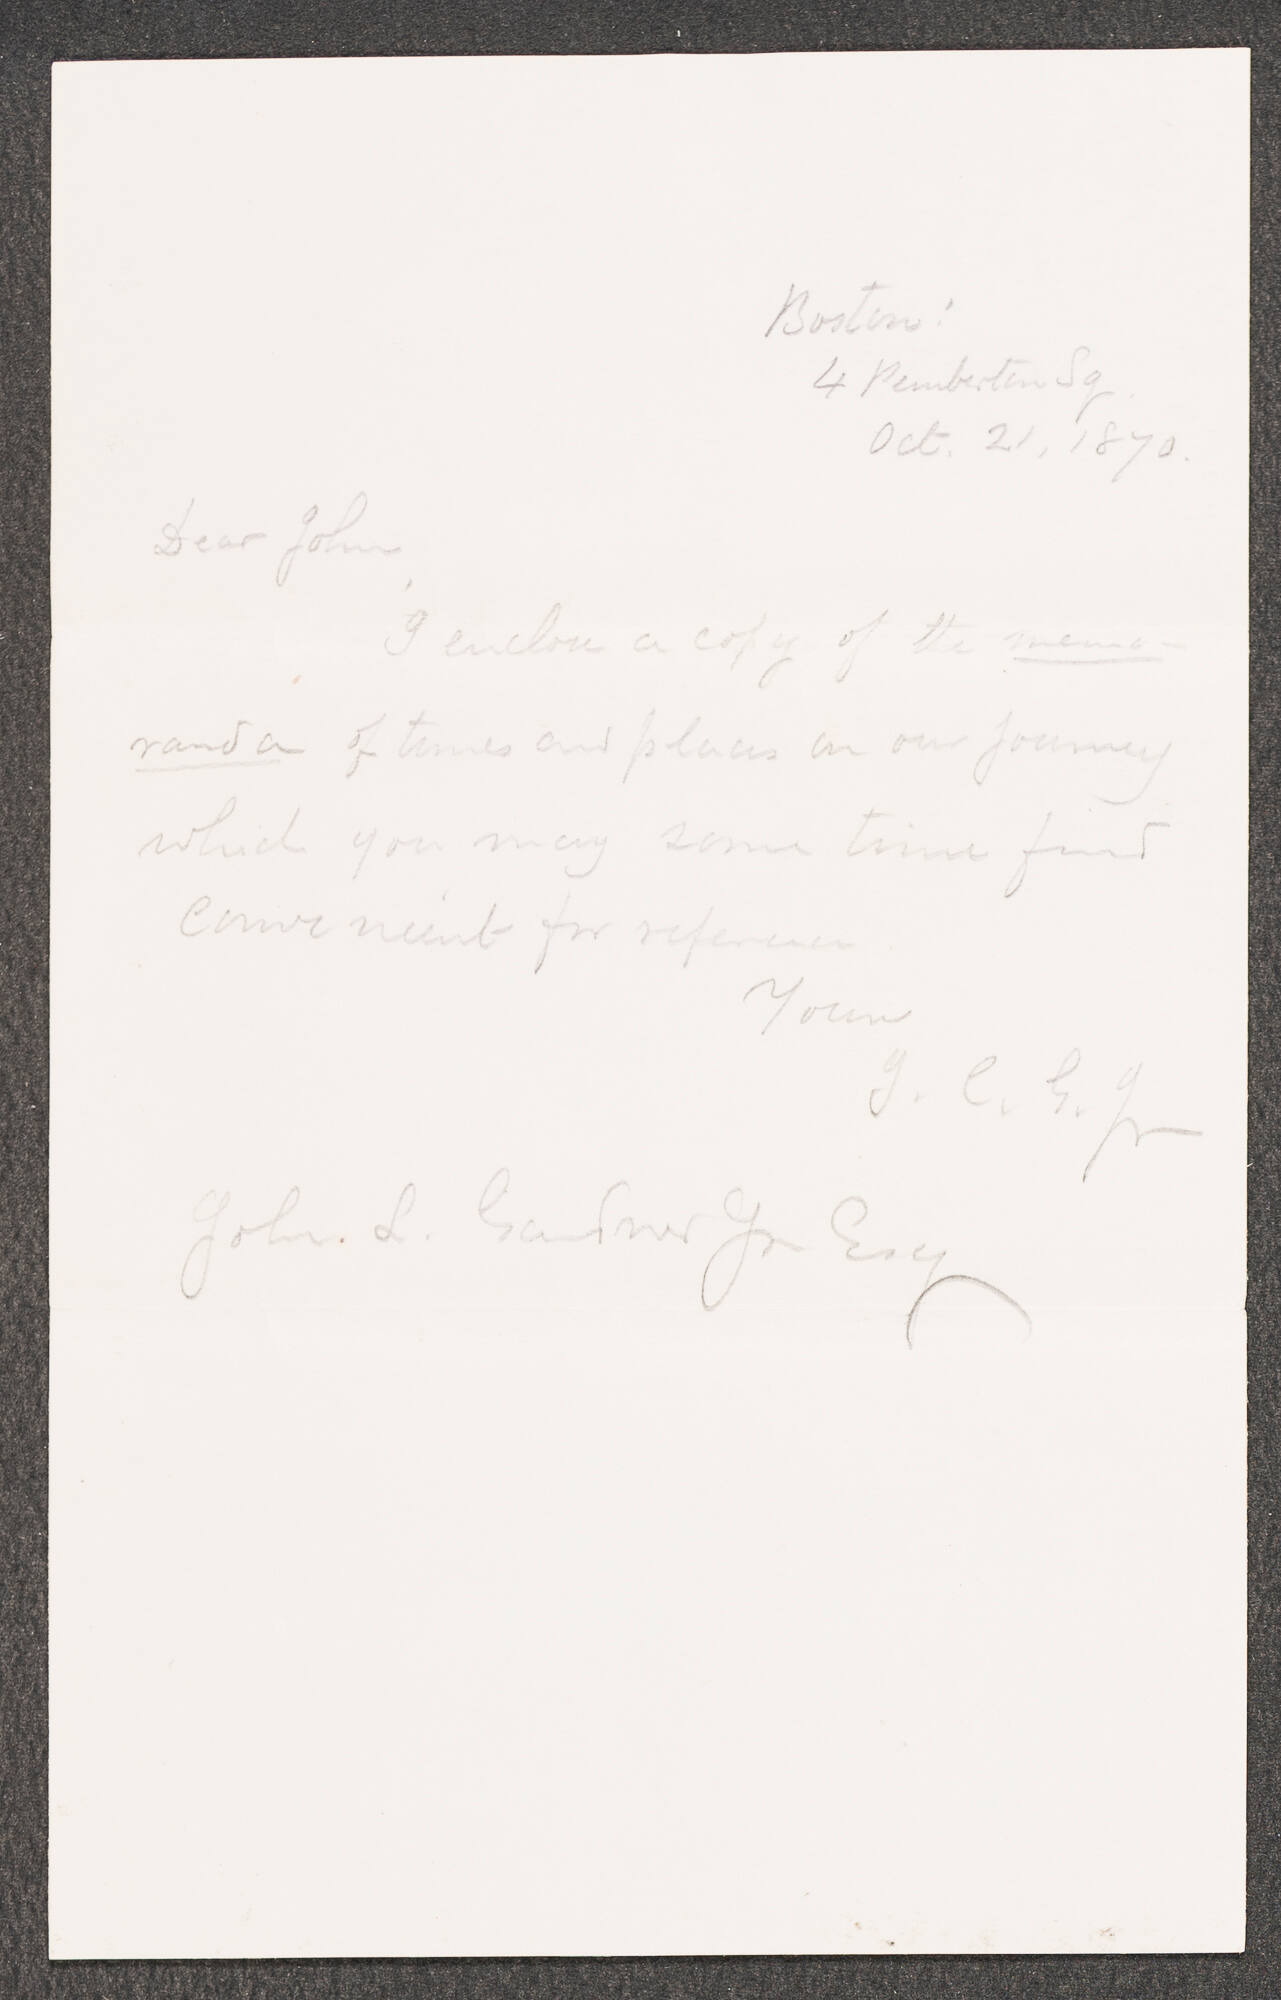 Boston:
4 Pemberton Sq.
Oct. 21, 1870.
Dear John,
I enclose a copy of the memo-
randa of times and places on our journey
which you may some time find
convenient for reference.
Yours
J. C. G. Jr
John. L. Gardner Jr Esq